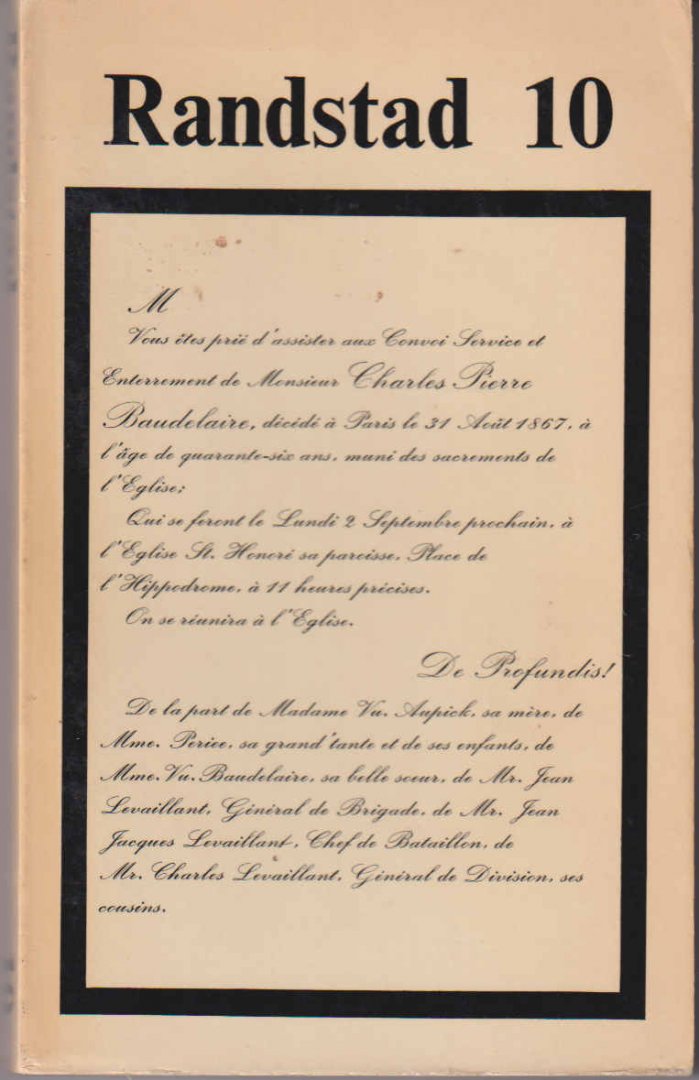 Randstad 10
M
Vous êtes prié d'assister aux Convoi Service et
Enterrement de Monsieur Charles Pierre
Baudelaire, décédé à Paris le 31 Août 1867, à
l'âge de quarante-six ans, muni des sacrements de
l'Eglise;
Qui se feront le Lundi 2 Septembre prochain, à
l'Eglise St. Honoré sa paroisse, Place de
l'Hippodrome, à 11 heures précises.
On se réunira à l'Eglise.
De Profundis!
De la part de Madame Vu. Aupick, sa mère, de
Mme. Periee, sa grand'tante et de ses enfants, de
Mme. Vu. Baudelaire, sa belle soeur, de Mr. Jean
Levaillant, Général de Brigade, de Mr. Jean
Jacques Levaillant, Chef de Bataillon, de
Mr. Charles Levaillant, Général de Division, ses
cousins.